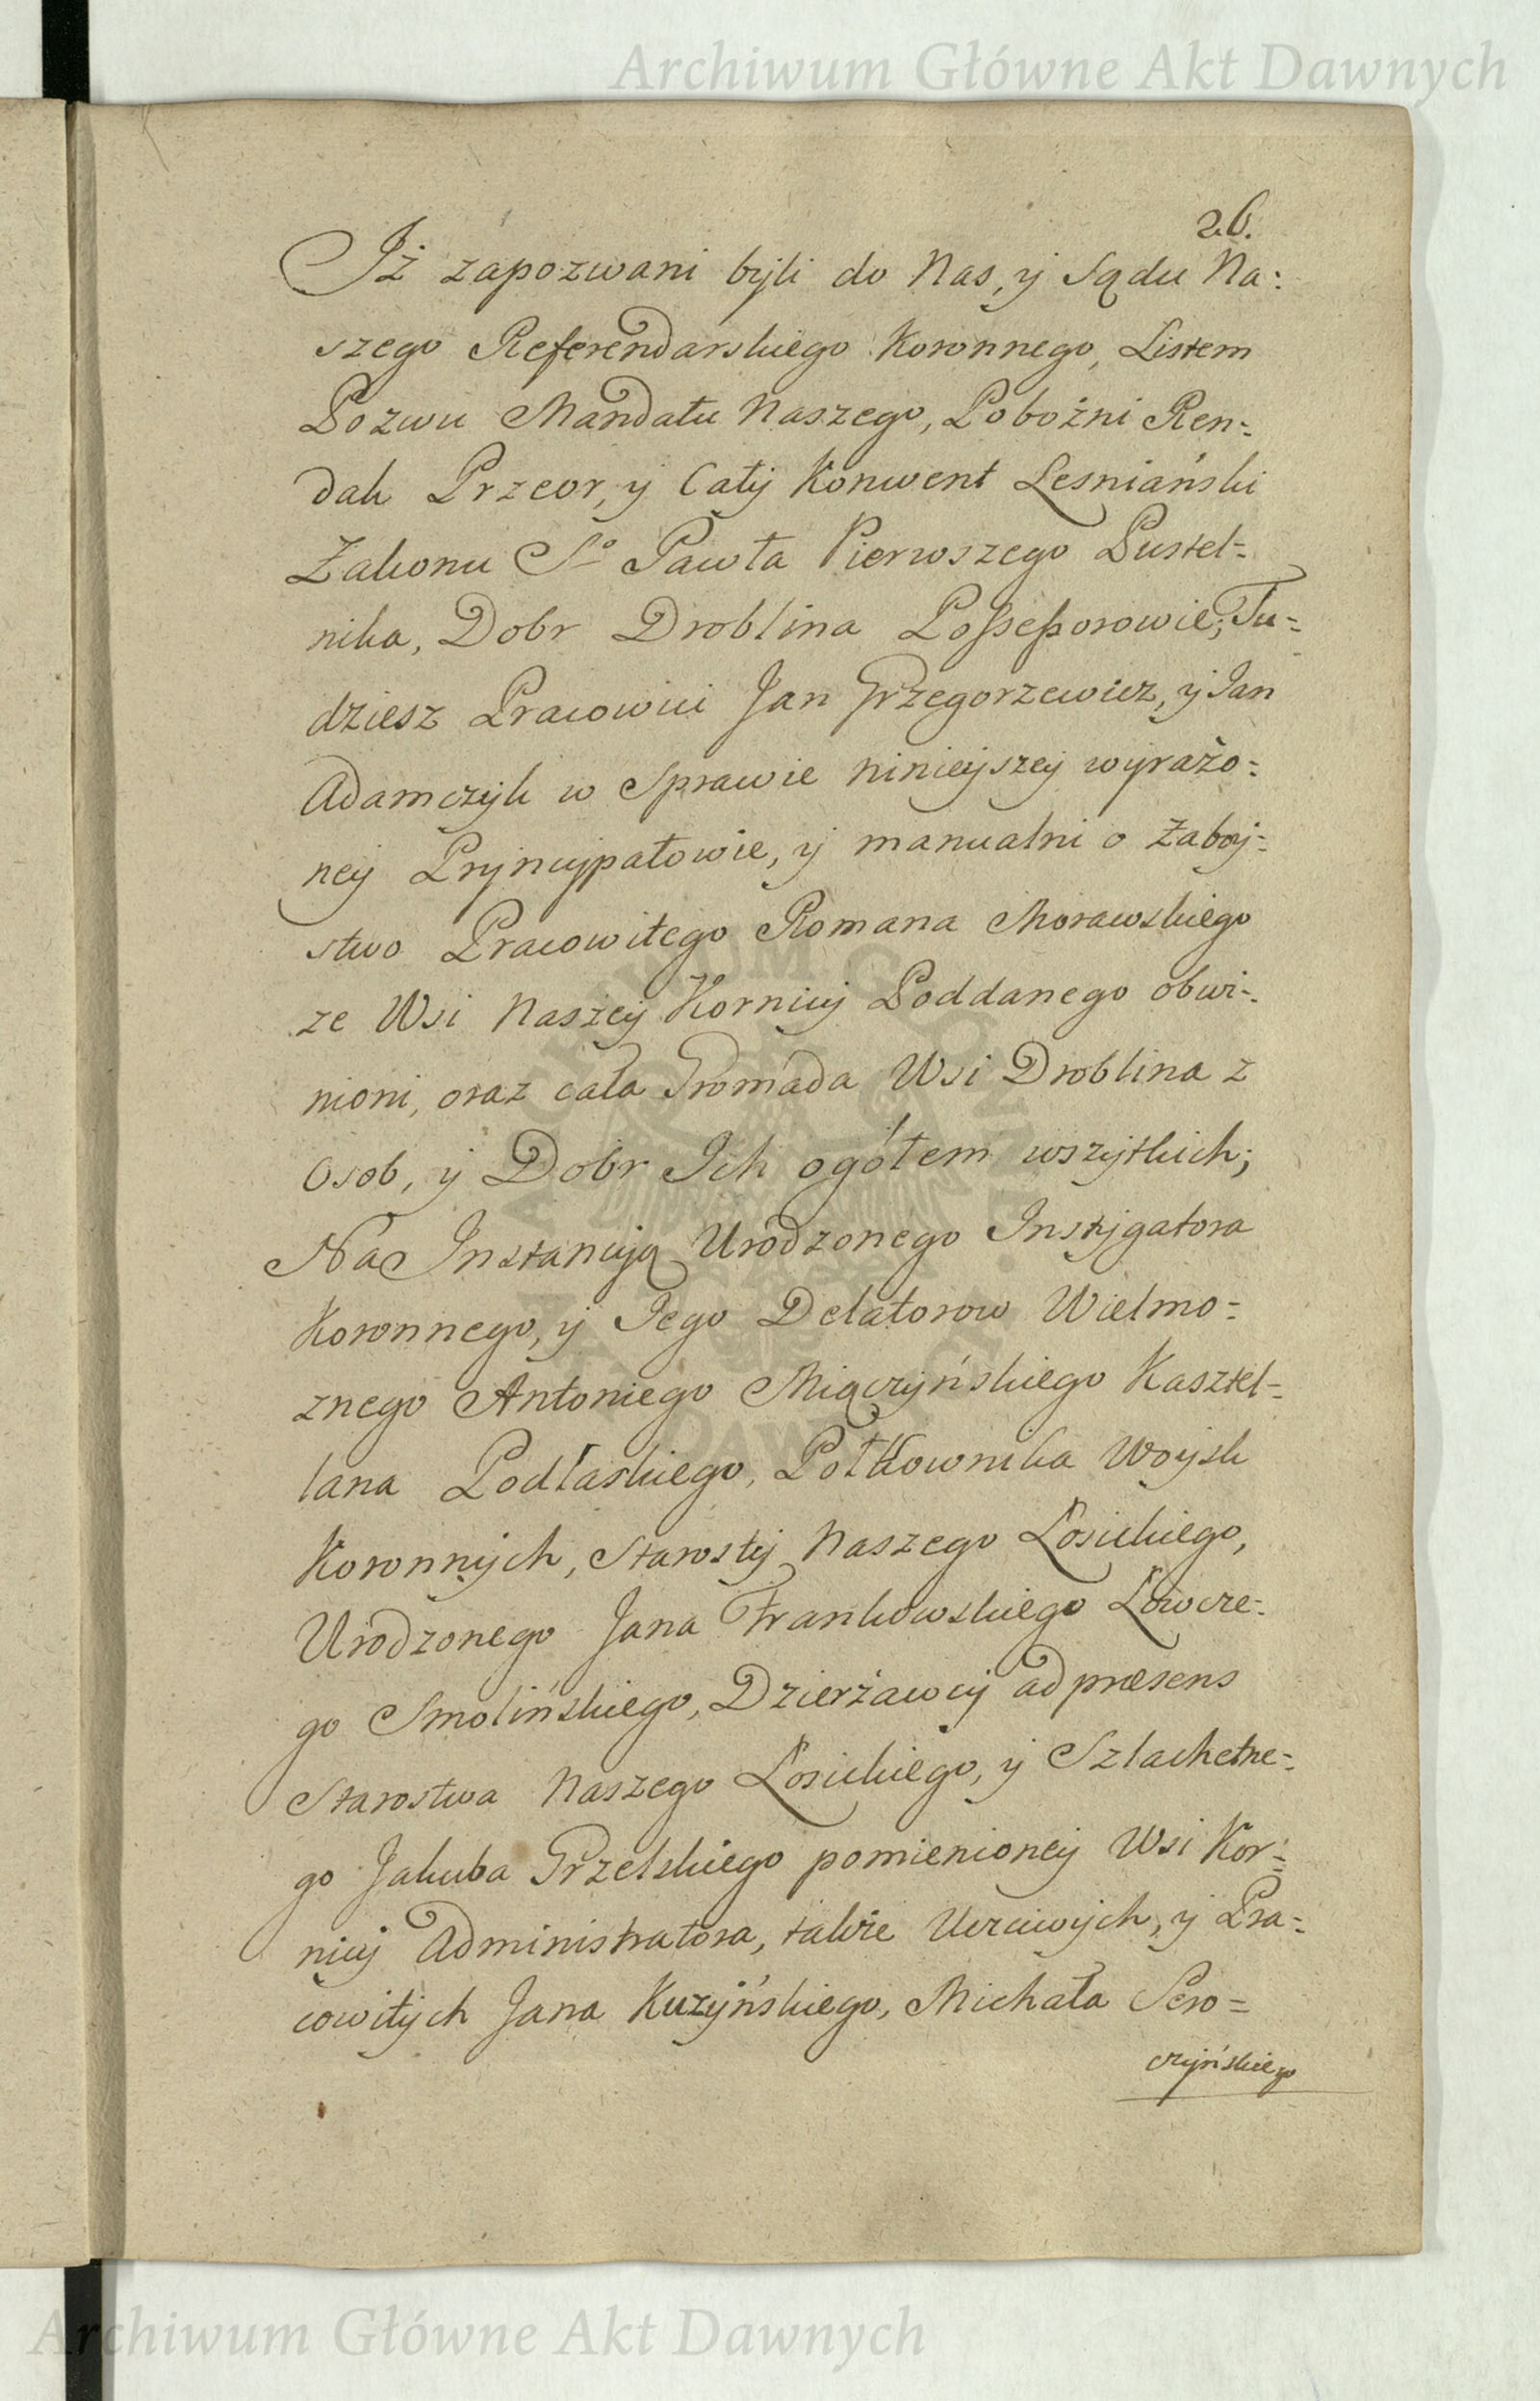 Archiwum Główne Akt Dawnych
26.
Iż zapozwani byli do Nas, y Sądu Na:
szego Referendarskiego Koronnego, Listem
Pozwu Mandatu Naszego, Pobożni Ren=
dak Przeor, y Cały Konwent Lesniański
Zakonu So Pawła Pierwszego Pustel=
nika, Dobr Droblina Possessorowie, Tu=
dziesz Pracowici Jan Grzegorzewicz, y Jan
Adamczyk w Sprawie ninieyszey wyrażo=
ney Pryncypałowie, y manualni o Zaboy=
stwo Pracowitego Romana Morawskiego
ze Wsi Naszey Kornicy Poddanego obwi=
nioni, oraz cała Gromada Wsi Droblina z
Osob, y Dobr Ich ogółem wszytkich;
Na Instancyą Urodzonego Instygatora
Koronnego, y Jego Delatorow Wielmo=
znego Antoniego Miączyńskiego Kasztel=
lana Podlaskiego, Połkownika Woysk
Koronnych, Starosty Naszego Łosickiego,
Urodzonego Jana Frankowskiego Łowcze=
go Smolińskiego, Dzierżawcy ad præsens
Starostwa Naszego Łosickiego, y Szlachetne=
go Jakuba Grzelskiego pomienioney Wsi Kor=
nicy Administratora, także Uczciwych, y Pra=
cowitych Jana Kuzyńskiego, Michała Sero=
czyńskiego
Archiwum Główne Akt Dawnych